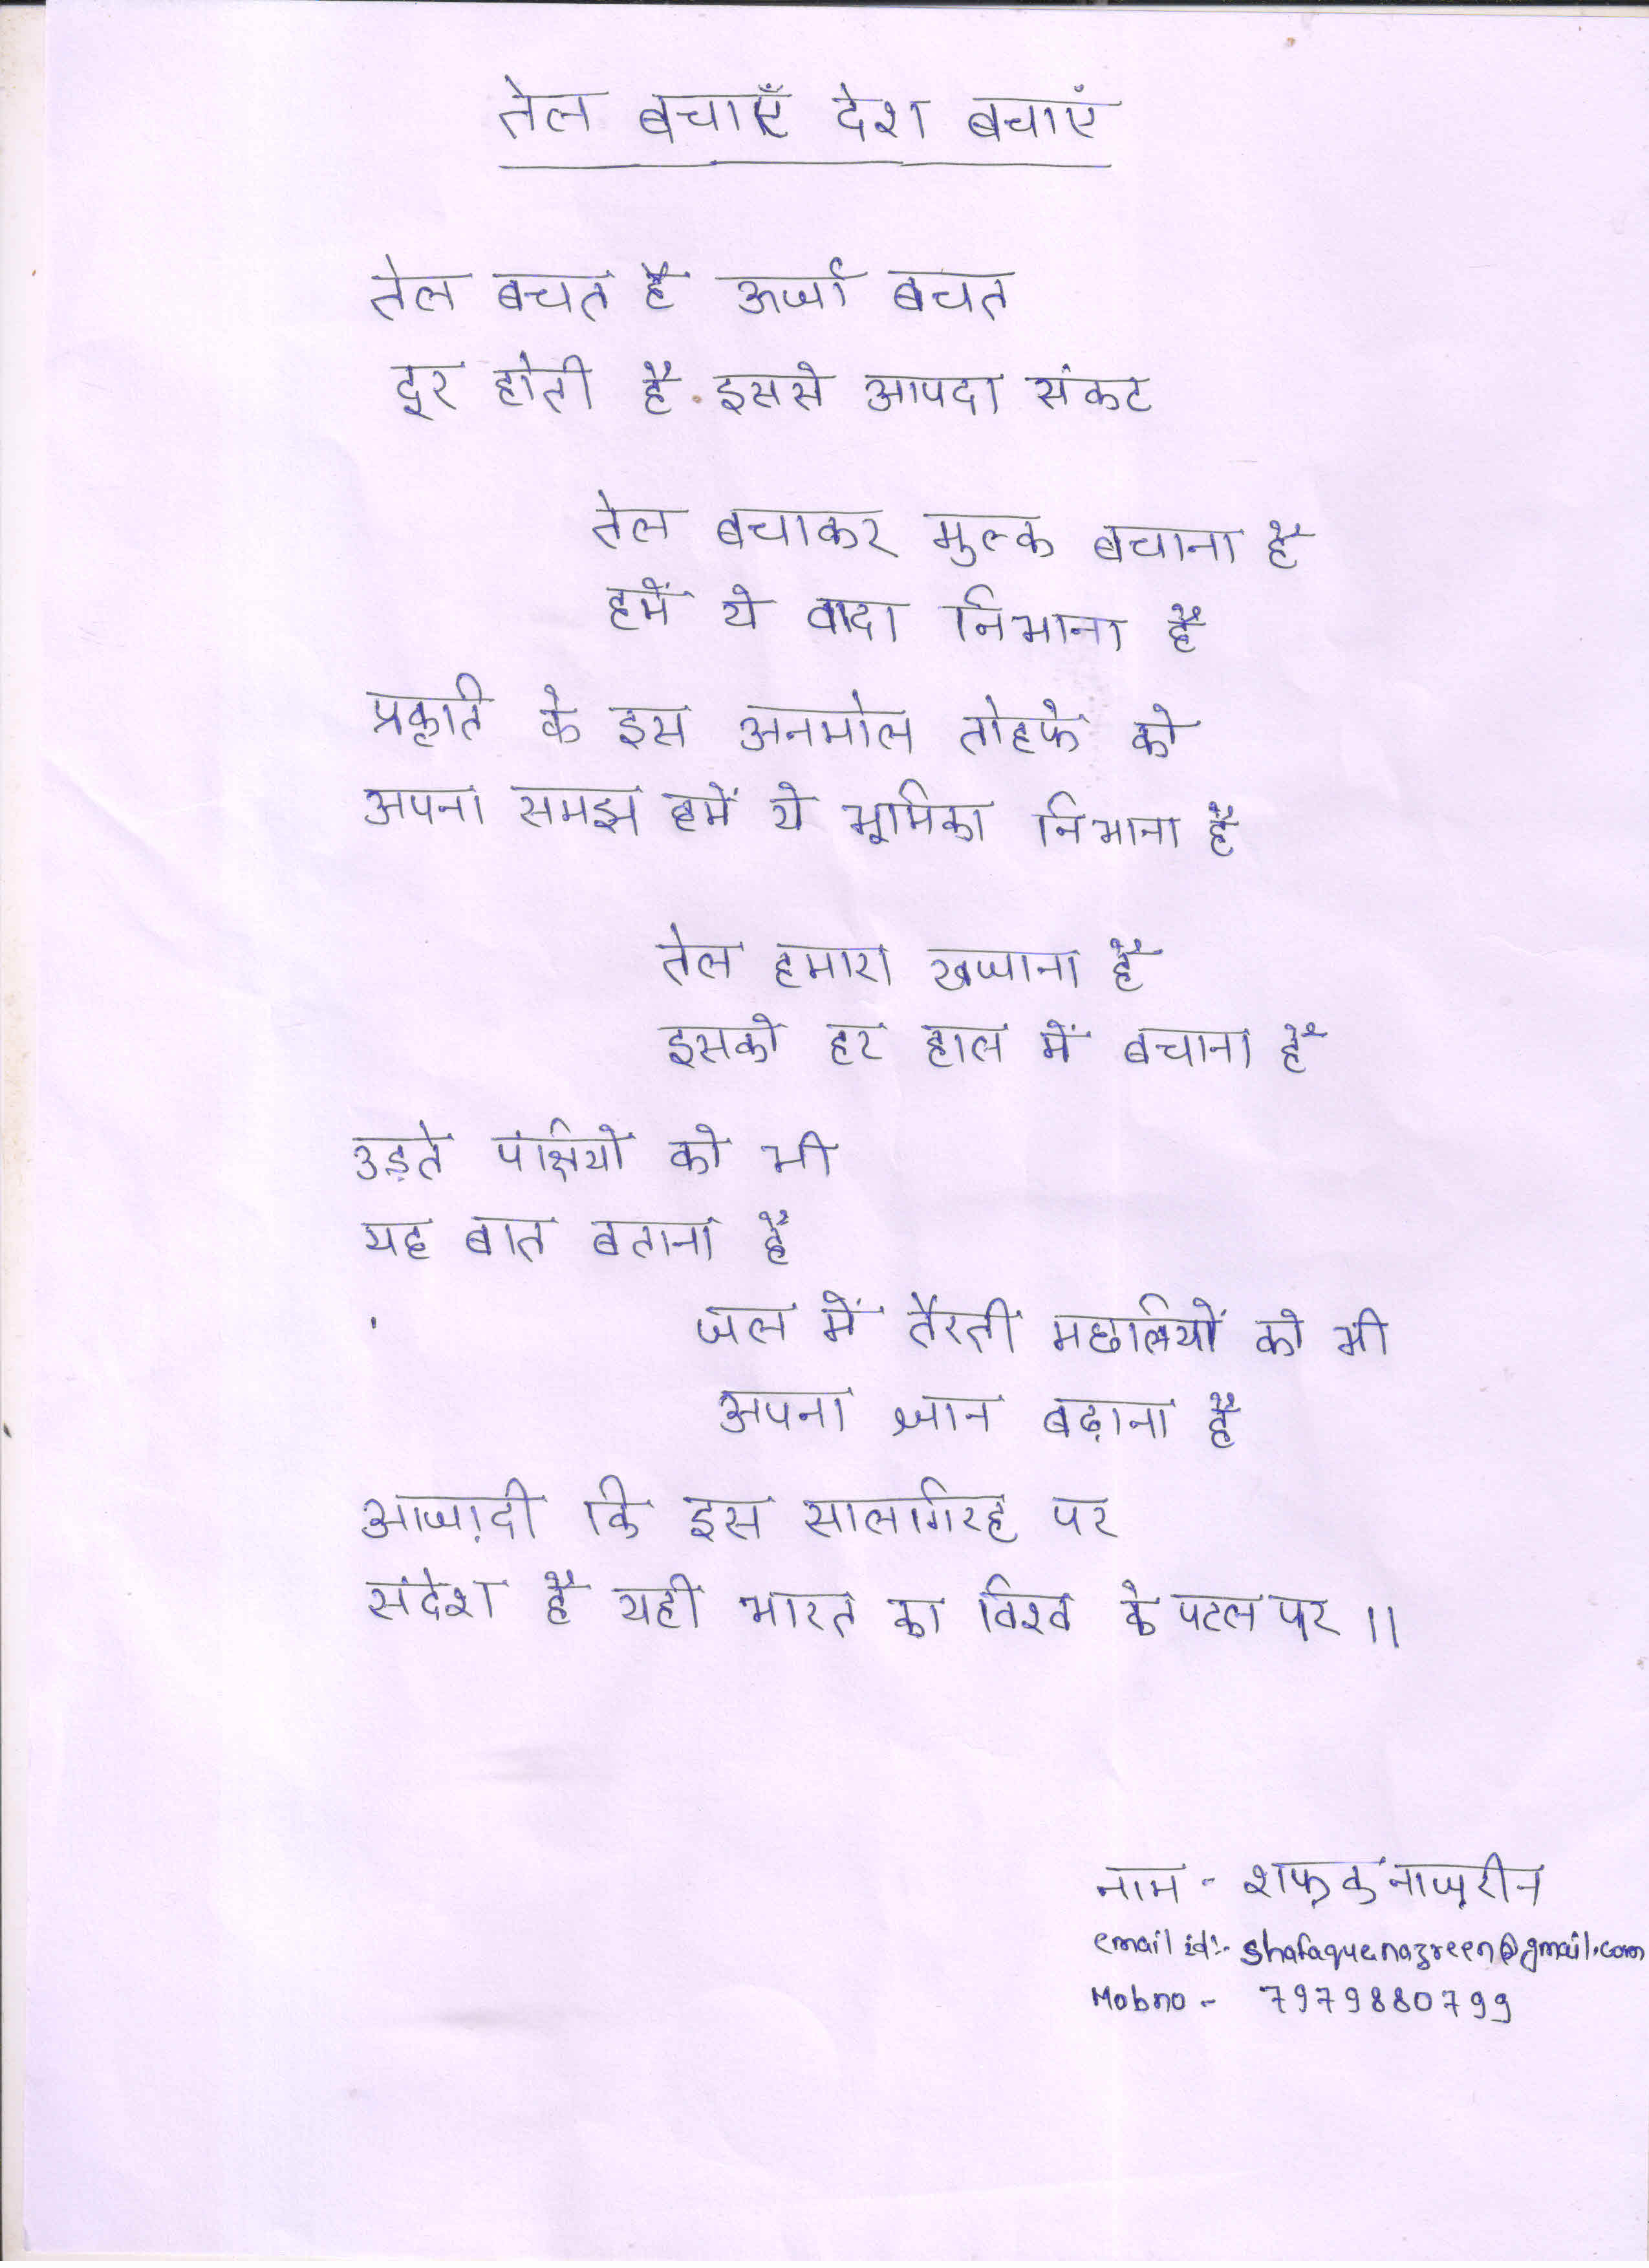 तेल बचाएँ देश बचाएं
तेल बचत है ऊर्जा बचत
दूर होती है इससे आपदा संकट
तेल बचाकर मुल्क बचाना है
हमें ये वादा निभाना है
प्रकृति के इस अनमोल तोहफे को
अपना समझ हमें ये भूमिका निभाना है
तेल हमारा खजाना है
इसको हर हाल में बचाना है
उड़ते पंक्षियों को भी
यह बात बताना है
जल में तैरती मछलियों को भी
अपना ज्ञान बढ़ाना है
आजा़दी कि इस सालगिरह पर
संदेश है यही भारत का विश्व के पटल पर ॥
नाम - शफ़क़ नाज़रीन
email id:- shafaquenazreen@gmail.com
Mobno - 7979880799